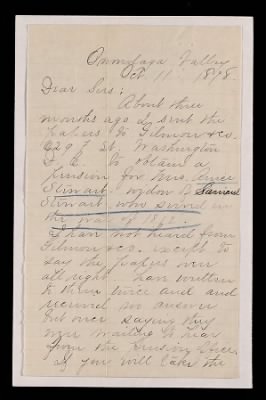 Onondaga Valley
Oct 11 1898
Dear Sirs;
About three
months ago I sent the
papers to Gilmore & co.
629 F St. Washington
D. C. to obtain a
pension for Mrs. Amee
Stewart widow of Samuel
Stewart who served in
the war of 1812.
I han not heard from
Gilmore & co. except to
say the papers were
all right han written
to them twice and and
received no answer
but once saying they
were waiting to hear
from the Pension Office.
if you will take the